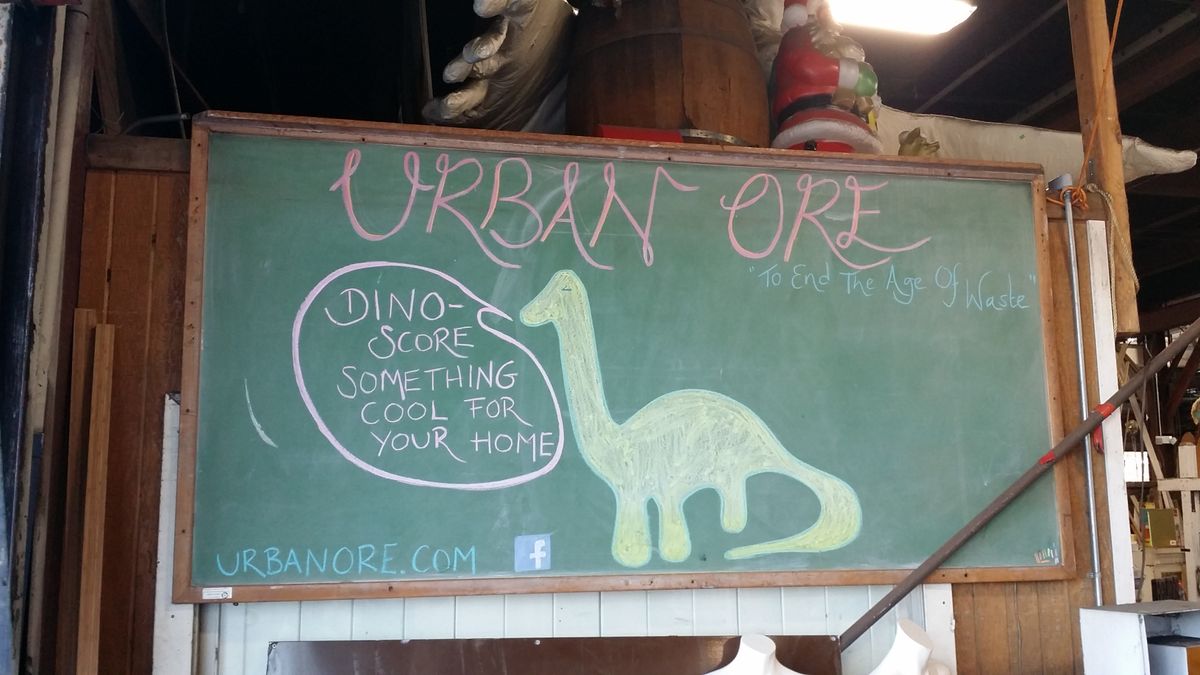 URBAN ORE
"To End The Age Of Waste"
DINO-
SCORE
SOMETHING
COOL FOR
YOUR HOME
URBANORE.COM
f